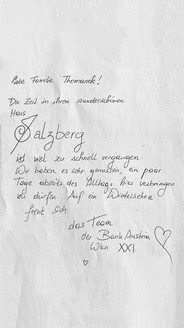 Liebe Familie Thomanek!
Die Zeit in ihrem wunderschönen
Haus
Salzberg
ist viel zu schnell vergangen.
Wir haben es sehr genossen, ein paar
Tage abseits des Alltags hier verbringen
zu dürfen. Auf ein Wiedersehen
freut sich
das Team
der Bank Austria
Wien XXI